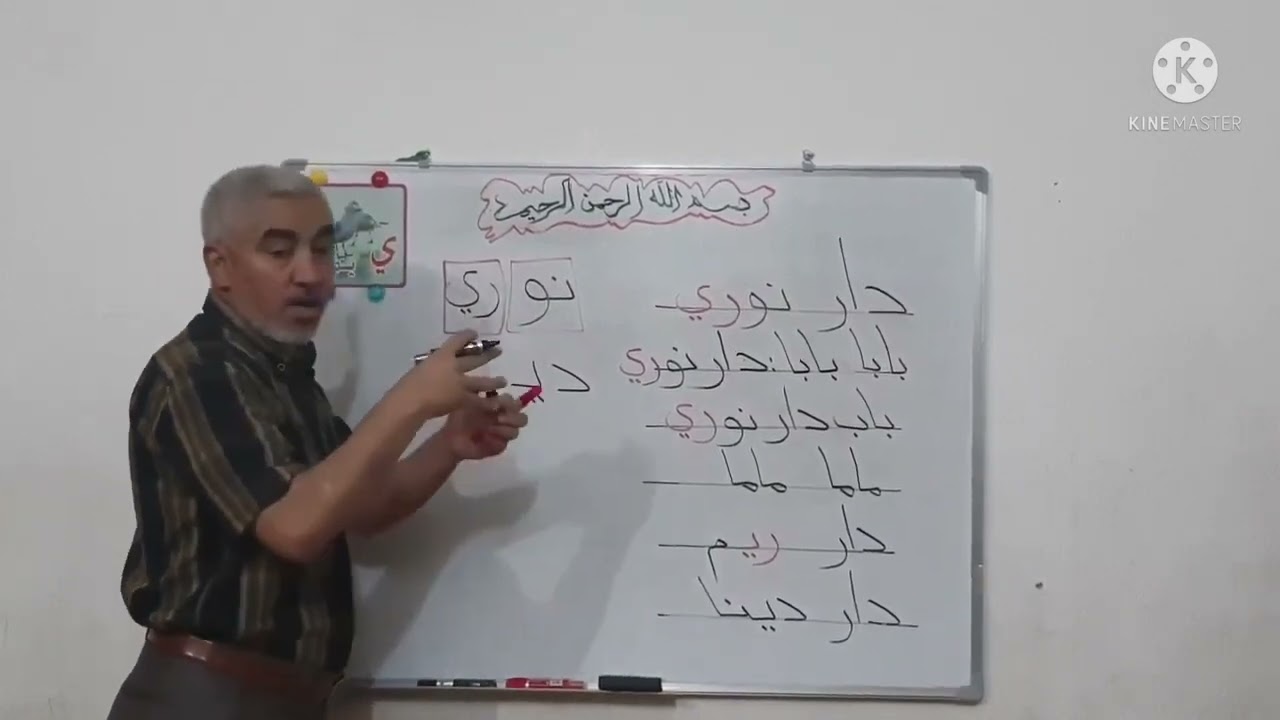 بسم الله الرحمن الرحيم
دار نوري
بابا بابا: دار نوري
باب دار نوري
ماما ماما
دار ريم
دار دينا
نو ري
ي
KINEMASTER